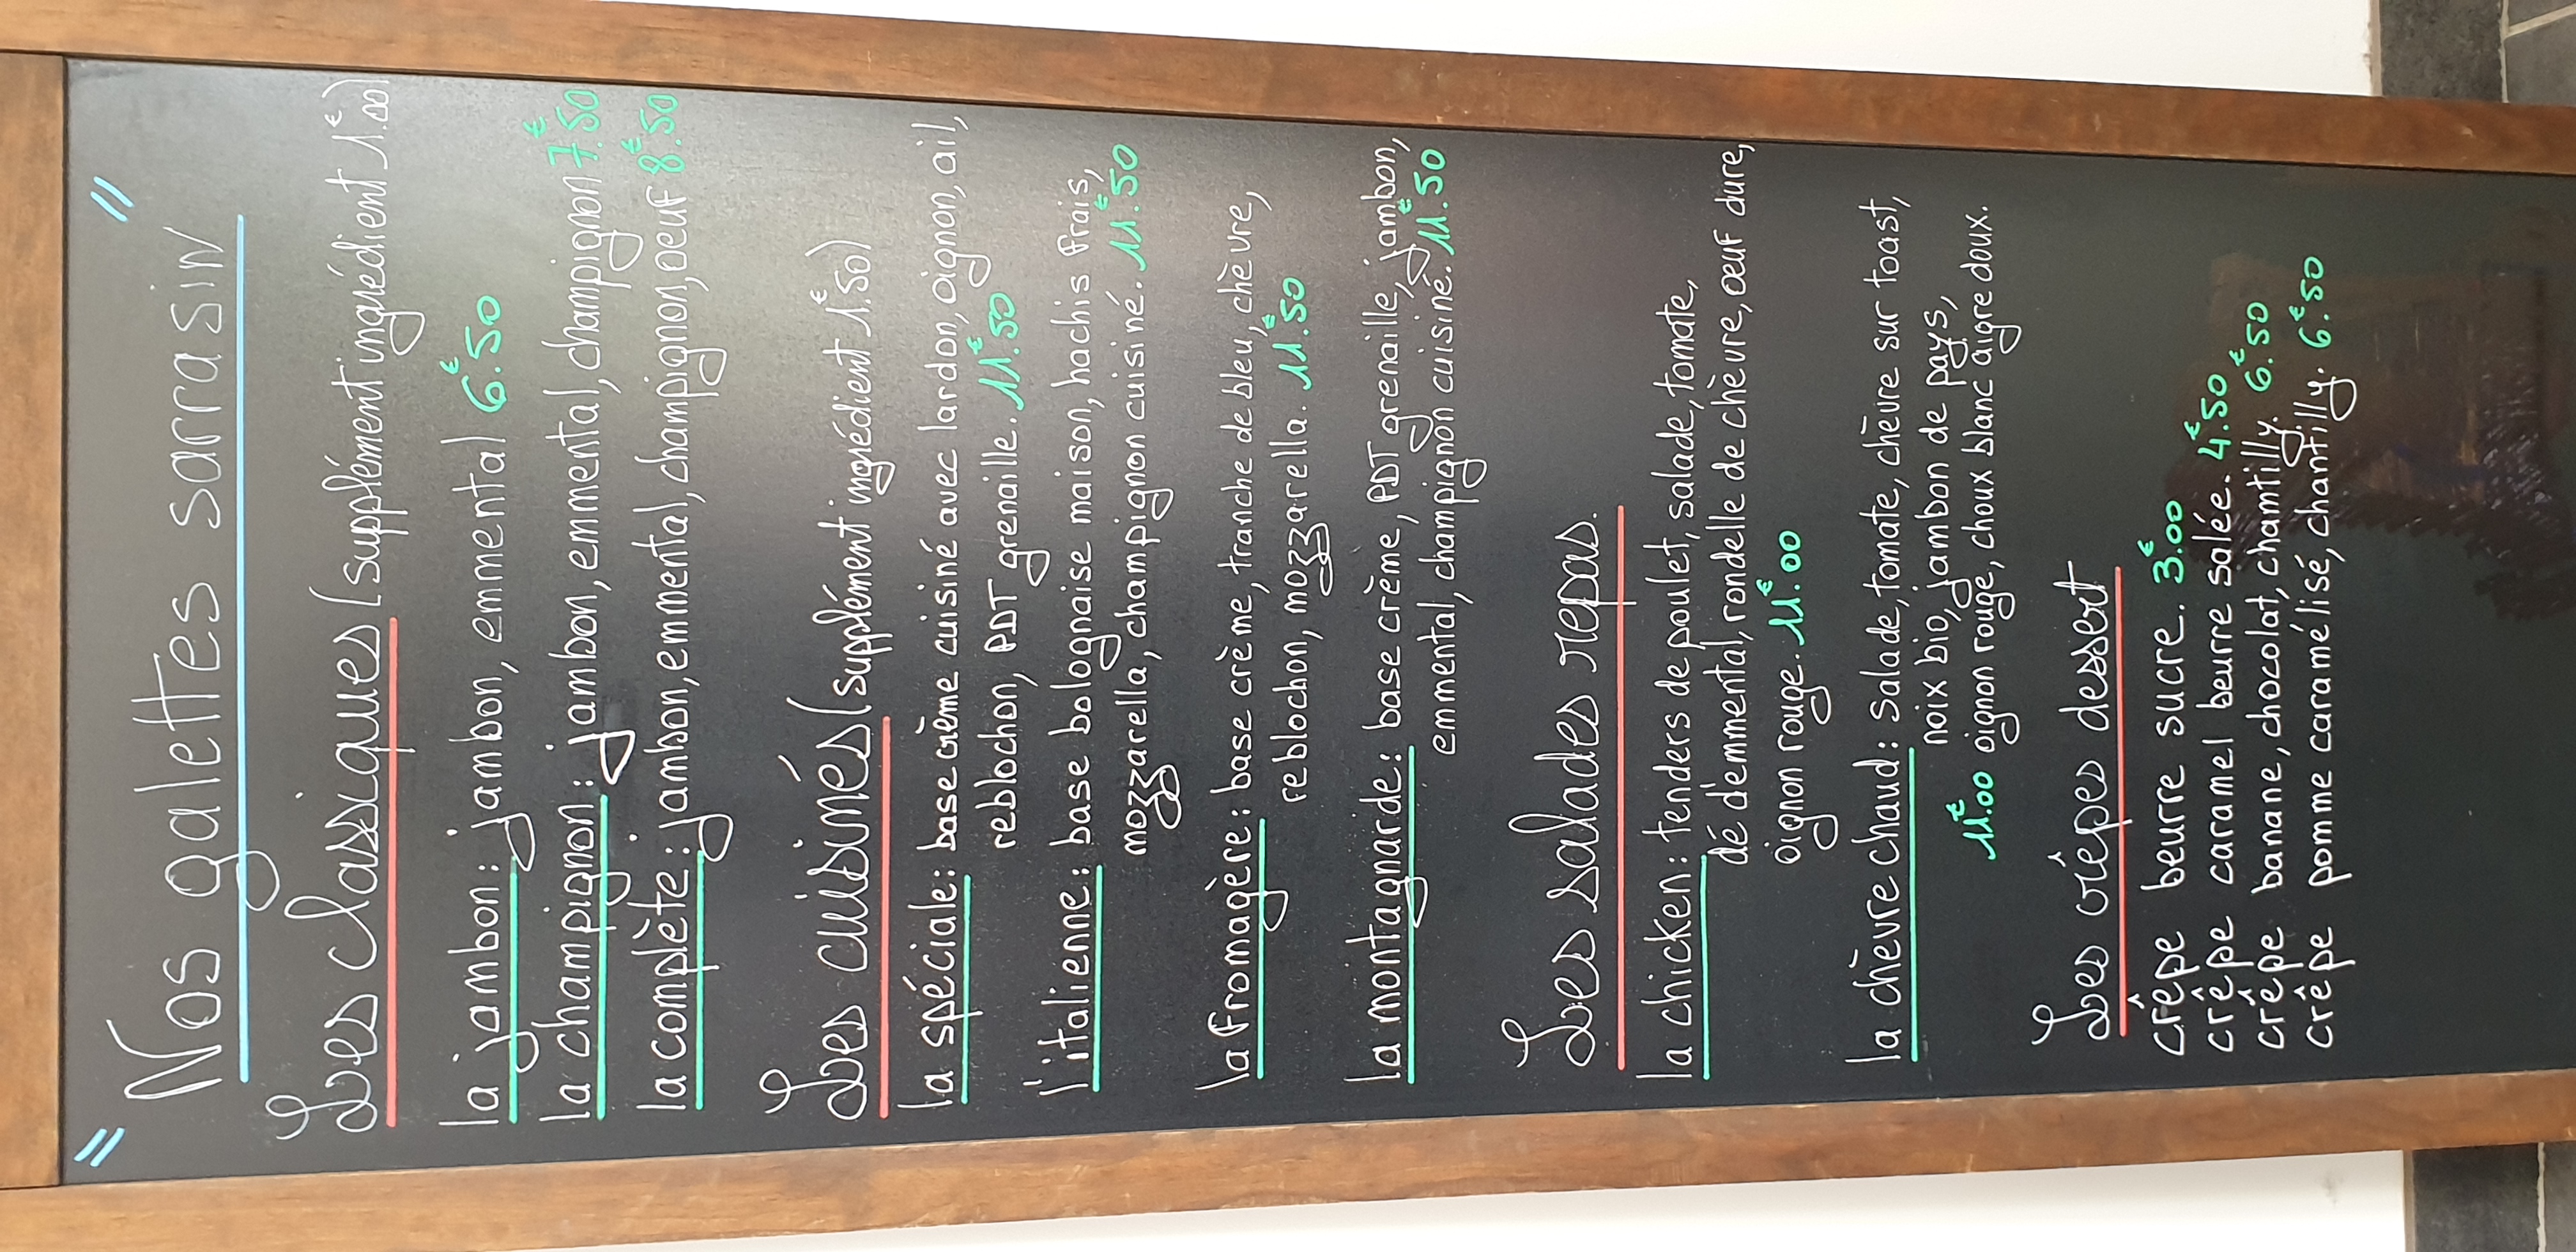 " Nos galettes sarrasin "
Les classiques (supplément ingrédient 1€.00)
la jambon : jambon, emmental 6€.50
la champignon : jambon, emmental, champignon 7€.50
la complète : jambon, emmental, champignon, oeuf 8€.50
Les cuisinés (supplément ingrédient 1€.50)
la spéciale : base crème cuisiné avec lardon, oignon, ail,
reblochon, PDT grenaille. 11€.50
l'italienne : base bolognaise maison, hachis frais,
mozzarella, champignon cuisiné. 11€.50
la fromagère : base crème, tranche de bleu, chèvre,
reblochon, mozzarella. 11€.50
la montagnarde : base crème, PDT grenaille, jambon,
emmental, champignon cuisiné. 11€.50
Les salades repas.
la chicken : tenders de poulet, salade, tomate,
dé d'emmental, rondelle de chèvre, œuf dure,
oignon rouge. 11€.00
la chèvre chaud : salade, tomate, chèvre sur toast,
noix bio, jambon de pays,
11€.00 oignon rouge, choux blanc aigre doux.
Les crêpes dessert
crêpe beurre sucre. 3€.00
crêpe caramel beurre salée. 4€.50
crêpe banane, chocolat, chamtilly. 6€.50
crêpe pomme caramélisé, chantilly. 6€.50